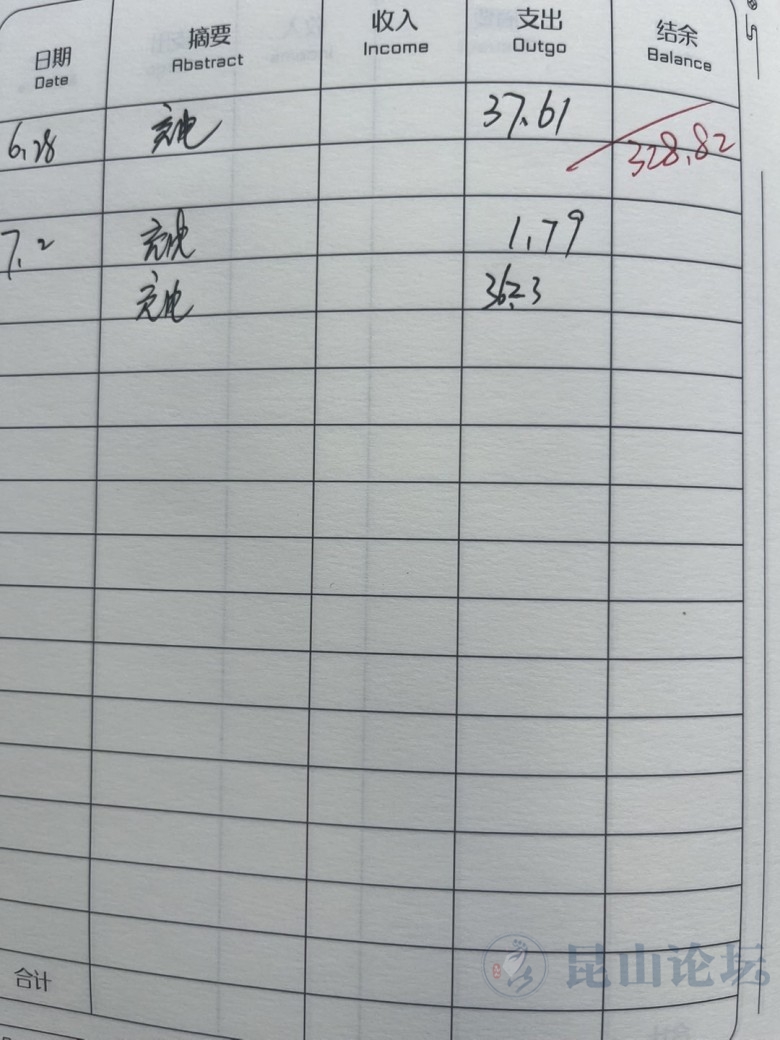 日期 摘要 收入 支出 结余
Date Abstract Income Outgo Balance
6.28 充电 37.61 328.82
7.2 充电 1.79
充电 36.23
合计
昆山论坛